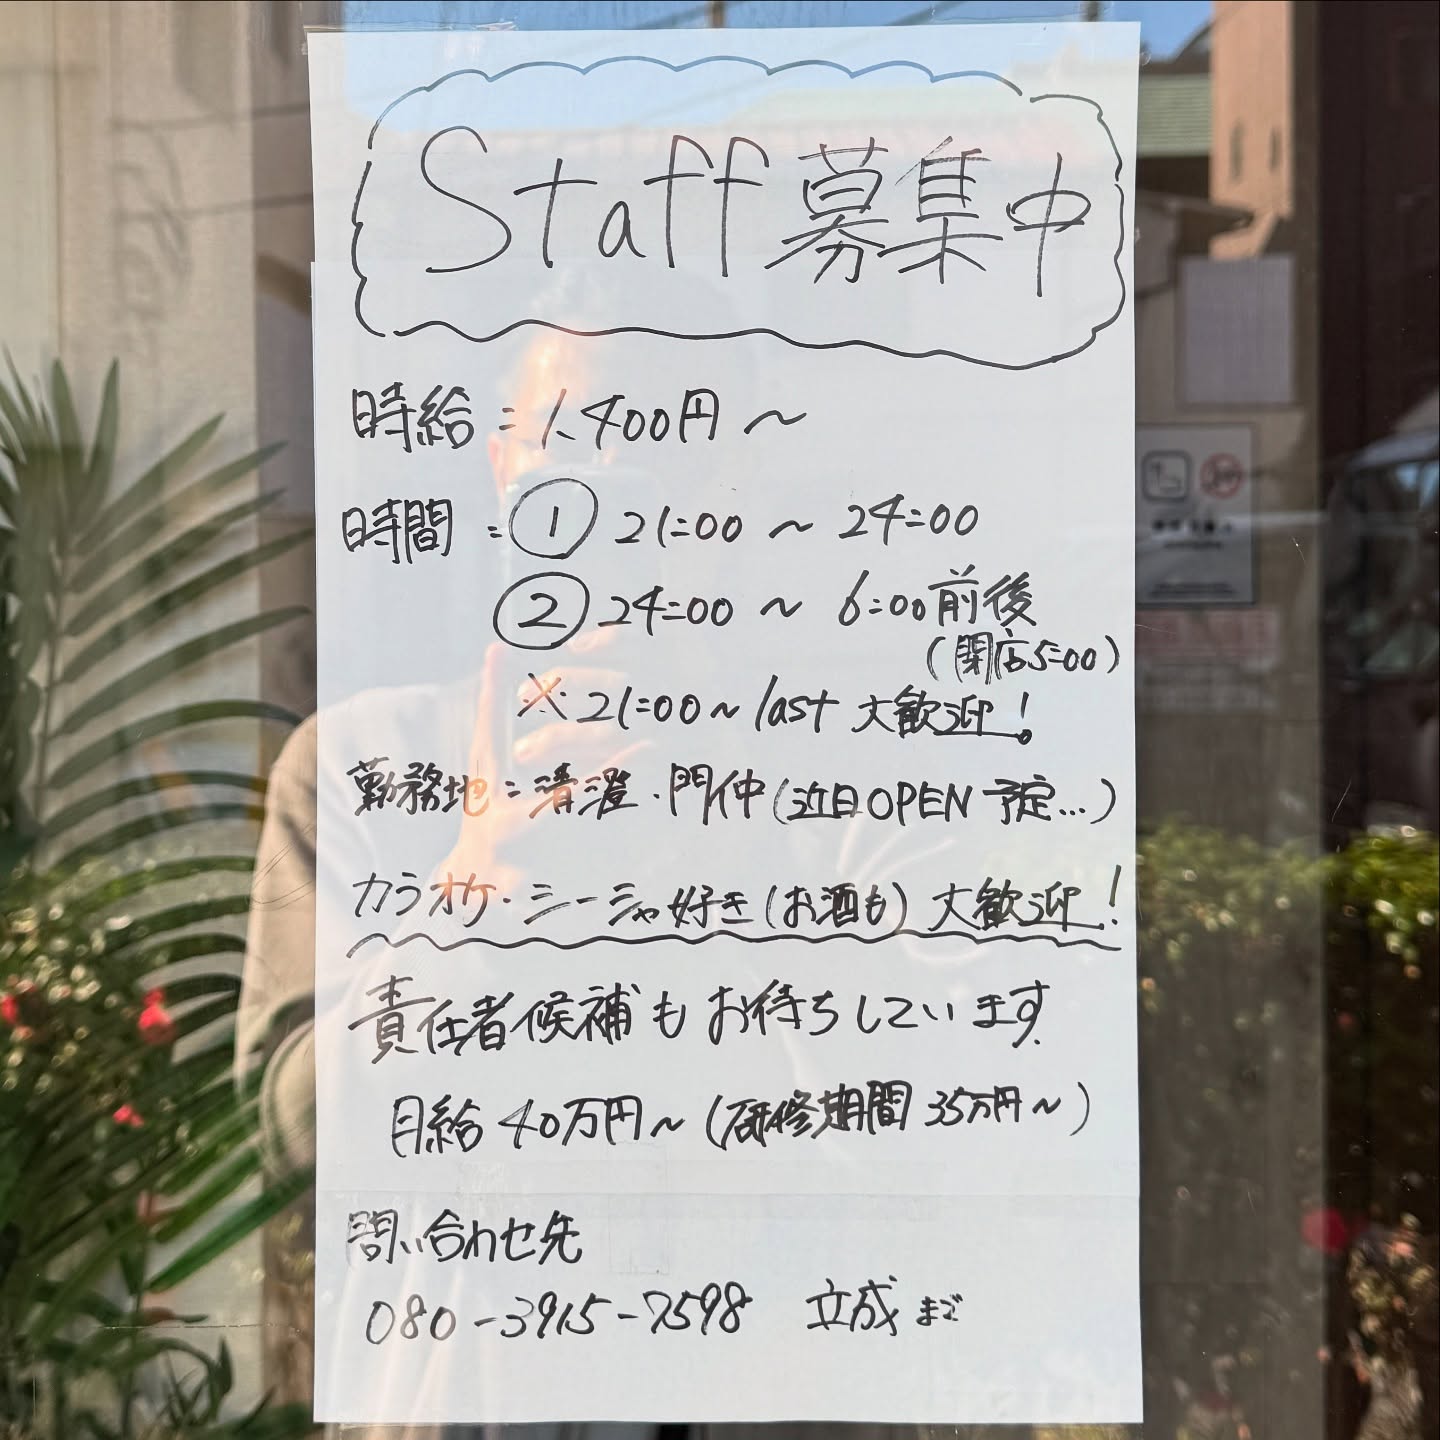 Staff募集中
時給:1,400円〜
時間:① 21:00 〜 24:00
② 24:00 〜 6:00前後
(閉店5:00)
※21:00〜last 大歓迎!
勤務地:清澄・門仲(近日OPEN予定...)
カラオケ・シーシャ好き(お酒も)大歓迎!
責任者候補もお待ちしています
月給40万円〜(研修期間35万円〜)
問い合わせ先
080-3915-7598 立成まで